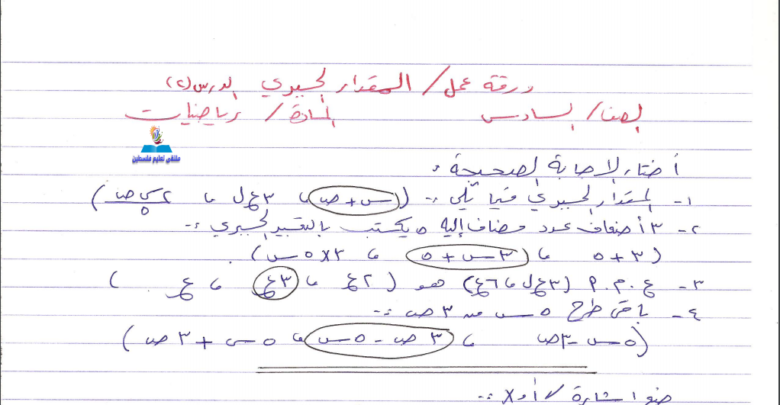 ورقة عمل / المقدار الجبري الدرس (٢)
الصف / السادس المادة / رياضيات
ملتقى تعليم فلسطين
أختار الإجابة الصحيحة :
١- المقدار الجبري فيما يلي :- (س + ص ، ٣ع ل ، ٢س ص / ٥)
٢- ٣ أضعاف عدد مضاف إليه ٥ يكتب بالتعبير الجبري :-
(٣ + ٥ ، ٣س + ٥ ، ٣ × ٥س)
٣- ع . م . أ (٣ع ل ، ٦ع) هو (٢ع ، ٣ع ، ع)
٤- باقي طرح ٥س من ٣ص :-
(٥س - ٣ص ، ٣ص - ٥س ، ٥س + ٣ص)
ضع إشارة √ أو × :-